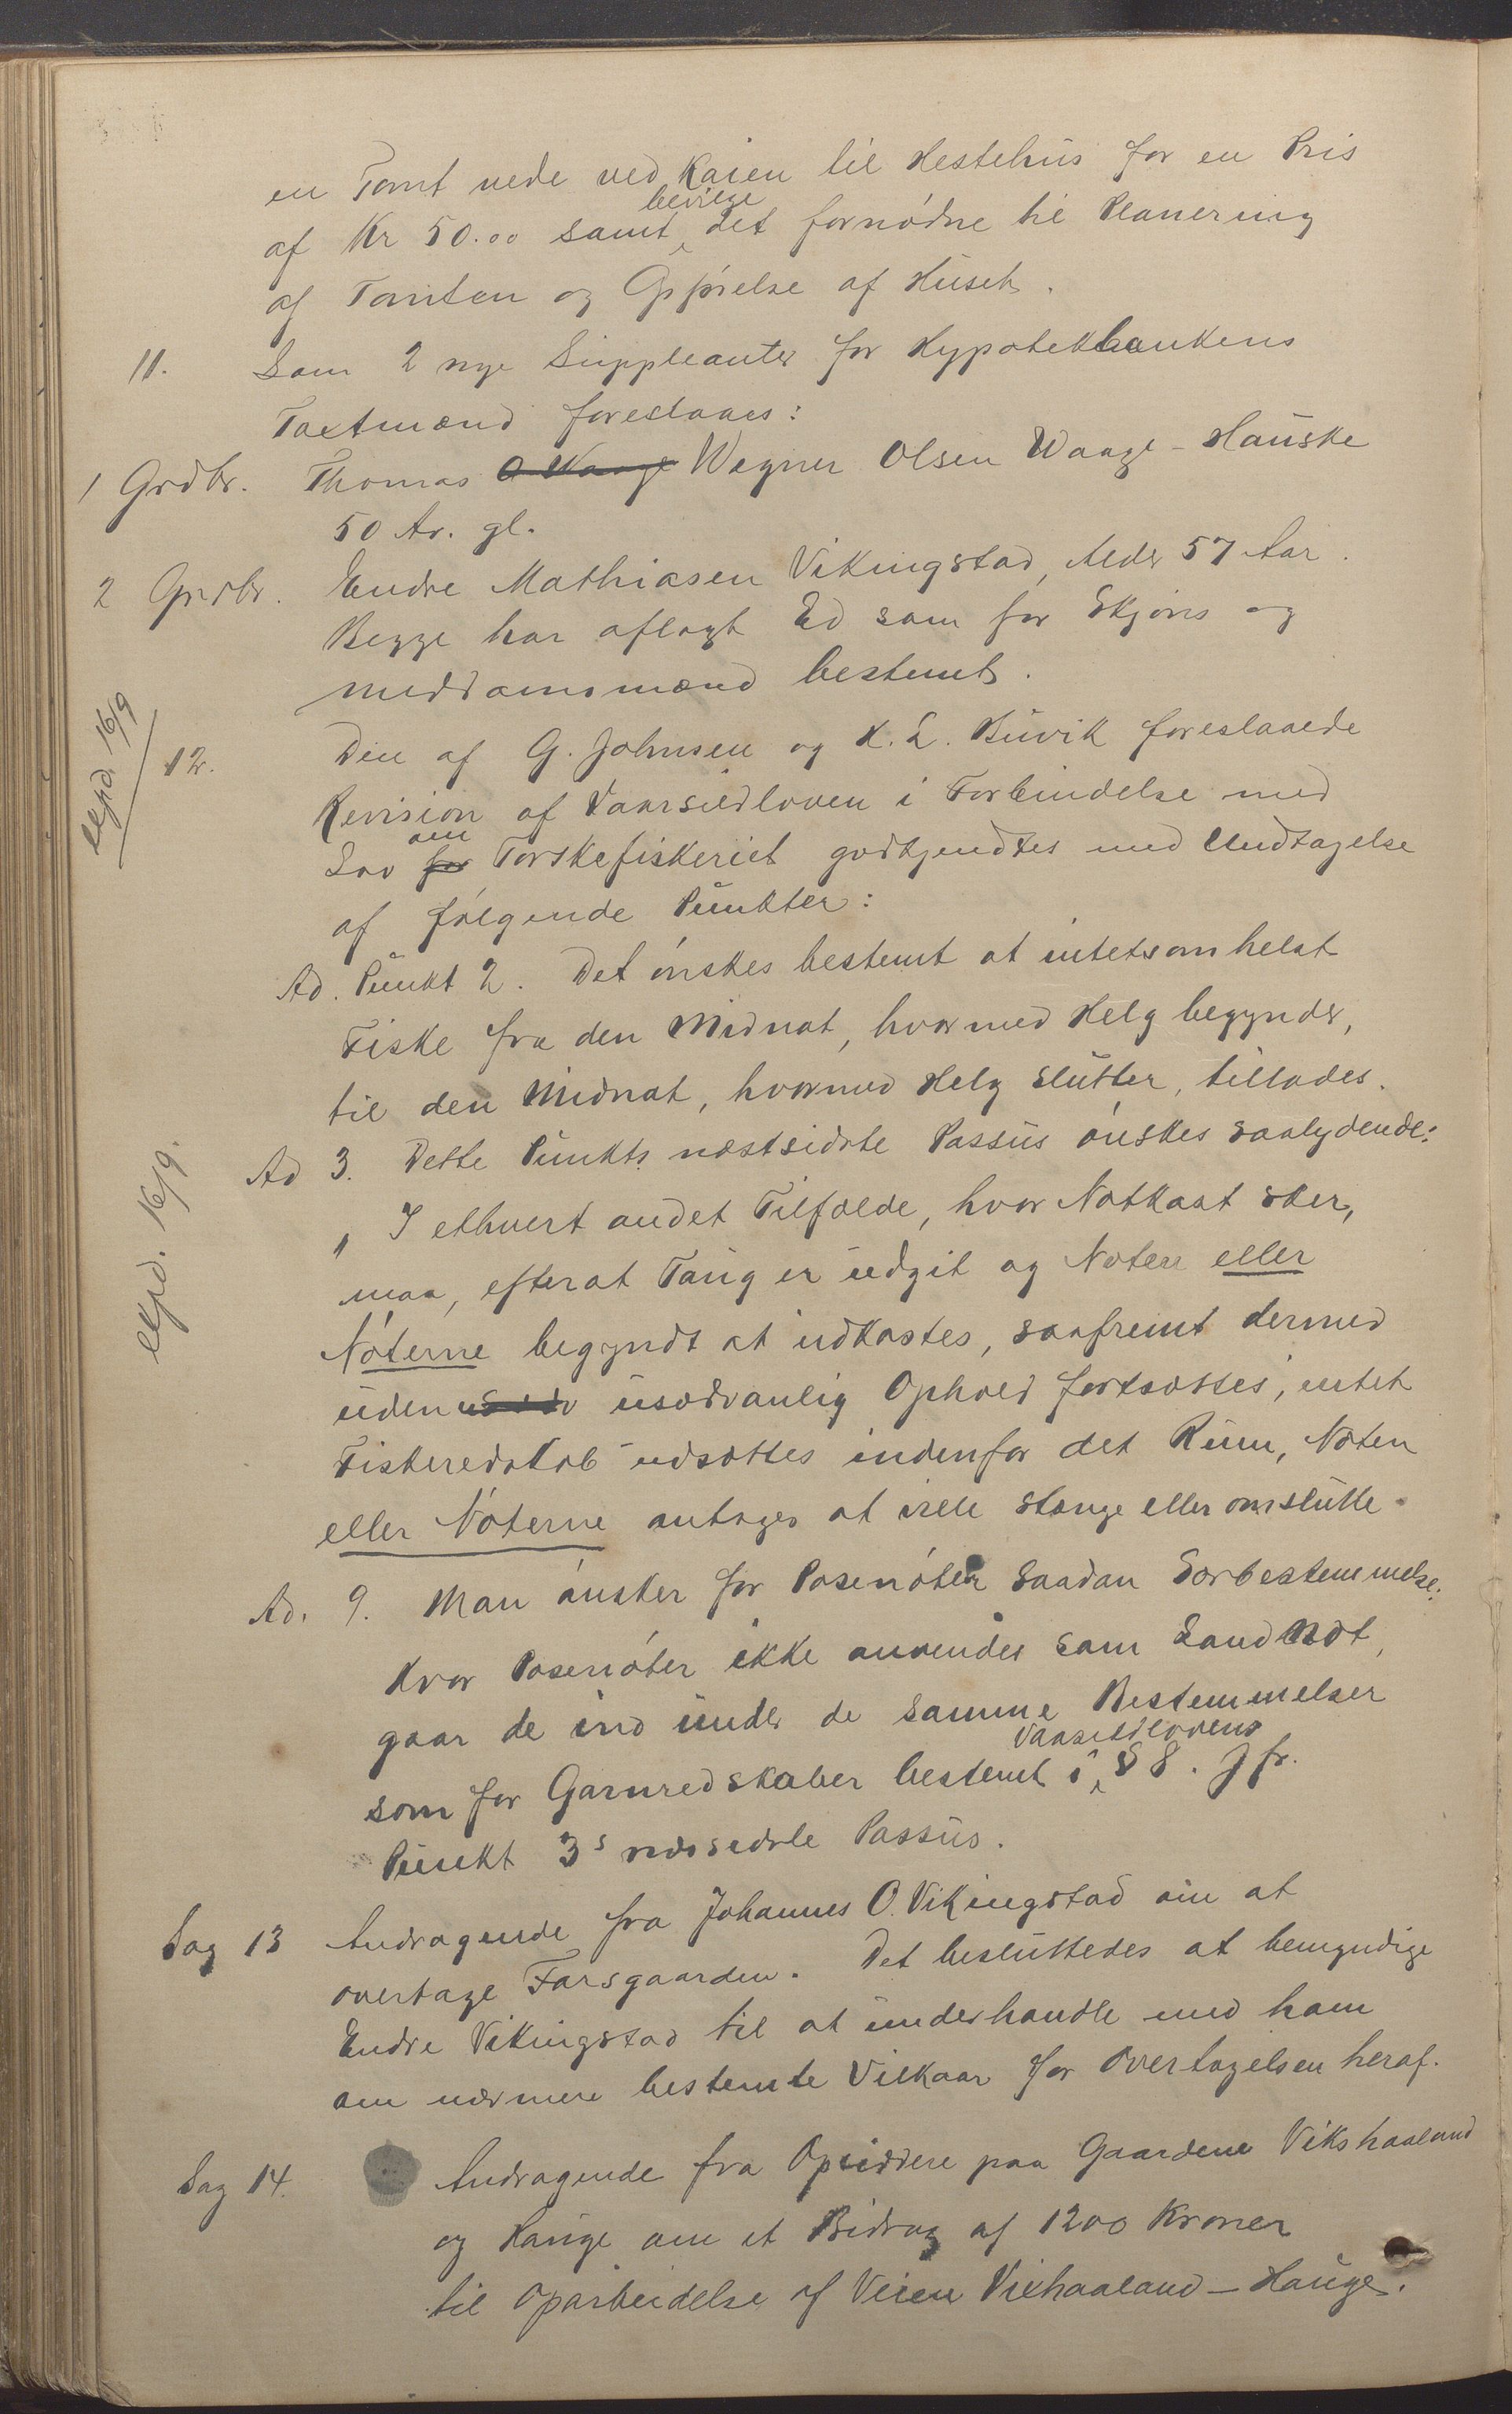 en Tomt nede ved Kaien til Hestehus for en Pris
af Kr 50.00 samt bevilge det fornødne til Planering
af Tomten og Opførelse af Huset.
11. Som 2 nye Suppleanter for Hypotekbankens
Taxtmænd foreslaaes:
1 Grdbr. Thomas O Waage Wegner Olsen Waage - Hauske
50 Ar. gl.
2 Grdbr. Endre Mathiasen Vikingstad, Alder 57 Aar.
Begge har aflagt Ed som for Skjøns og
meddomsmænd bestemt.
expd. 16/9
12. Den af G. Johnsen og K. L. Buvik foreslaaede
Revision af Vaarsildloven i Forbindelse med
Lov for om Torskefiskeriet godkjendtes med Undtagelse
af følgende Punkter:
Ad. Punkt 2. Det ønskes bestemt at intetsomhelst
Fiske fra den Midnat, hvormed Helg begynder,
til den Midnat, hvormed Helg slutter, tillades.
expd. 16/9.
Ad 3. Dette Punkts næstsidste Passus ønskes saalydende:
„ I ethvert andet Tilfælde, hvor Notkast sker,
maa, efterat Taug er udgit og Noten eller
Nøterne begyndt at udkastes, saafremt dermed
uden usædvanlig Ophold fortsættes, intet
Fiskeredskab udsættes indenfor det Rum, Noten
eller Nøterne antages at ville stænge eller omslutte.
Ad. 9. Man ønsker for Posenøter saadan Særbestemmelse:
Hvor Posenøter ikke anvendes som Landnot,
gaar de ind under de samme Bestemmelser
som for Garnredskaber bestemt i Vaarsildlovens § 8. Jfr.
Punkt 3s Passus.
Sag 13 Andragende fra Johannes O. Vikingstad om at
overtage Farsgaarden. Det besluttedes at bemyndige
Endre Vikingstad til at underhandle med ham
om nærmere bestemte Vilkaar for Overtagelsen heraf.
Sag 14. Andragende fra Opsiddere paa Gaardene Vikshaaland
og Hauge om et Bidrag af 1200 Kroner
til Oparbeidelse af Veien Vikhaaland - Hauge.